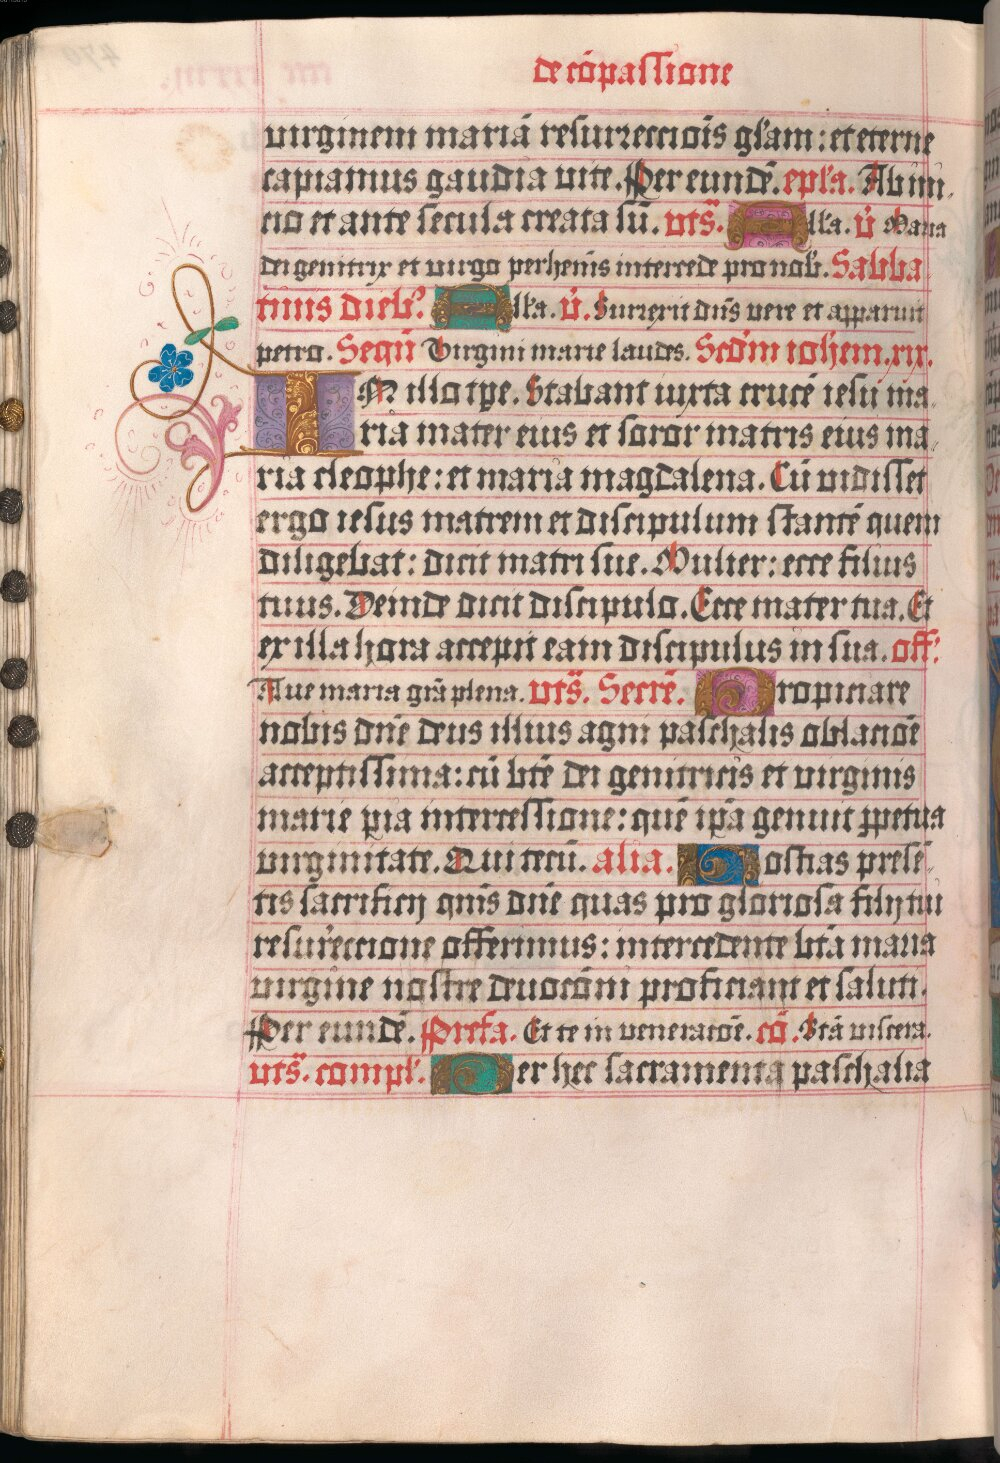 de cōpassione
uirginem mariā resurreccioīs gl'am: et eterne
capiamus gaudia uite. Per eundē. epl'a. Ab ini
cio et ante secula creata sū. uts̄. All'a. ů Maria
dei genitrix et uirgo perhenīs intercede pro nob'. Sabba
tinis dieb'. All'a. ů. Surrexit dn̄s uere et apparuit
petro. Sequī Uirgini marie laudes. Scd'm ioh'em. xix.
IN illo tp̄e. Stabant iuxta crucē iesu ma
ria mater eius et soror matris eius ma
ria cleophe: et maria magdalena. Cū uidisset
ergo iesus matrem et discipulum stantē quem
diligebat: dicit matri sue. Mulier: ecce filius
tuus. Deinde dicit discipulo. Ecce mater tua. Et
ex illa hora accepit eam discipulus in sua. off.
Aue maria grā plena. uts̄. Secrē. Propiciare
nobis dn̄e deus illius agni paschalis oblaciōe
acceptissima: cū btē dei genitricis et uirginis
marie pia intercessione: quē ip̄a genuit ꝑpetua
uirginitate. Qui tecū. alia. Hostias prese
tis sacrificij qm̄s dn̄e quas pro gloriosa filij tui
resureccione offerimus: intercedente btā maria
uirgine nostre deuocōni proficiant et saluti.
Per eundē. Prefa. Et te in ueneracōe. cō. Btā uiscera.
uts̄. compl'. Per hec sacramenta paschalia